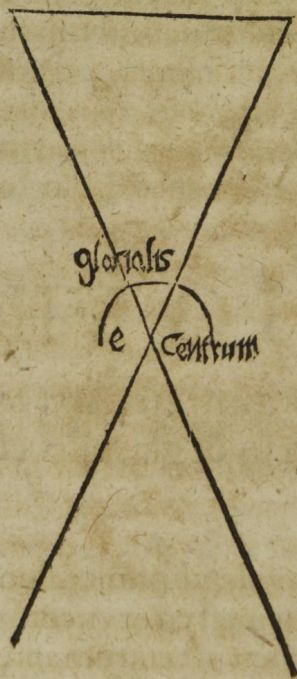 glacialis
e Centrum